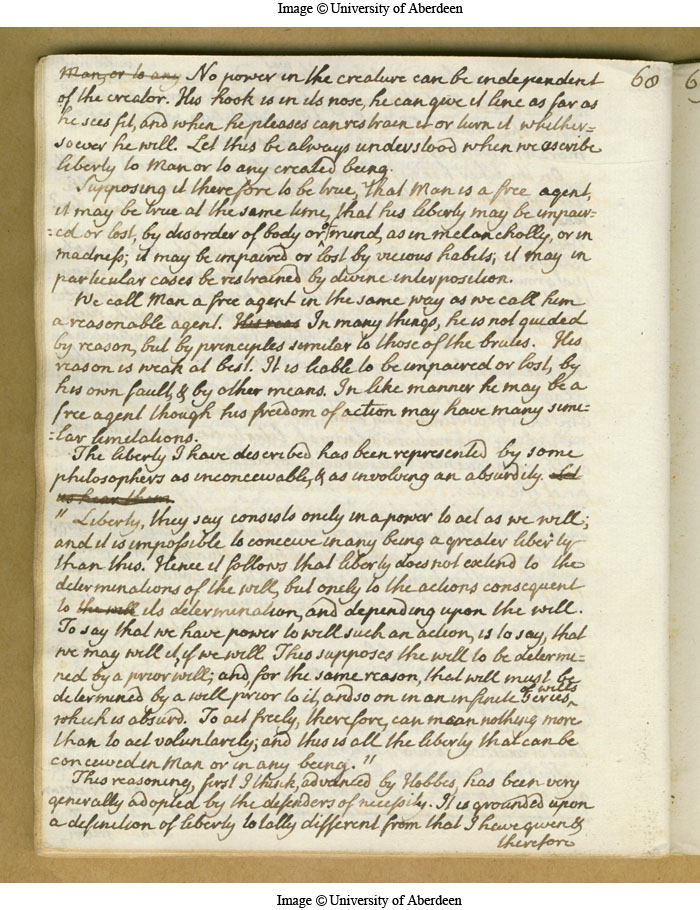 Image © University of Aberdeen
Man, or to any No power in the creature can be independent
68
of the creator. His hook is in its nose, he can give it line as far as
he sees fit, and when he pleases can restrain it or turn it whither=
soever he will. Let this be always understood when we ascribe
liberty to Man or to any created being.
Supposing it therefore to be true, that Man is a free agent,
it may be true at the same time, that his liberty may be impair=
=ed or lost, by disorder of body or mind, as in melancholly, or in
madness; it may be impaired or lost by vicious habits; it may in
particular cases be restrained by divine interposition.
We call Man a free agent in the same way as we call him
a reasonable agent. His reas In many things, he is not guided
by reason, but by principles similar to those of the brutes. His
reason is weak at best. It is liable to be impaired or lost, by
his own fault, & by other means. In like manner he may be a
free agent though his freedom of action may have many simi=
=lar limitations.
The liberty I have described has been represented by some
philosophers as inconceivable, & as involving an absurdity. Let
us hear them
" Liberty, they say consists onely in a power to act as we will;
and it is impossible to conceive in any being a greater liberty
than this. Hence it follows that liberty does not extend to the
determinations of the will, but onely to the actions consequent
to the will its determination, and depending upon the will.
To say that we have power to will such an action, is to say, that
we may will it, if we will. This supposes the will to be determi=
ned by a prior will; and, for the same reason, that will must be
determined by a will prior to it, and so on in an infinite Series of wills
which is absurd. To act freely, therefore, can mean nothing more
than to act voluntarely; and this is all the liberty that can be
conceived in Man or in any being. "
This reasoning, first I think, advanced by Hobbes, has been very
generally adopted by the defenders of necessity. It is grounded upon
a definition of liberty totally different from that I have given &
therefore
Image © University of Aberdeen